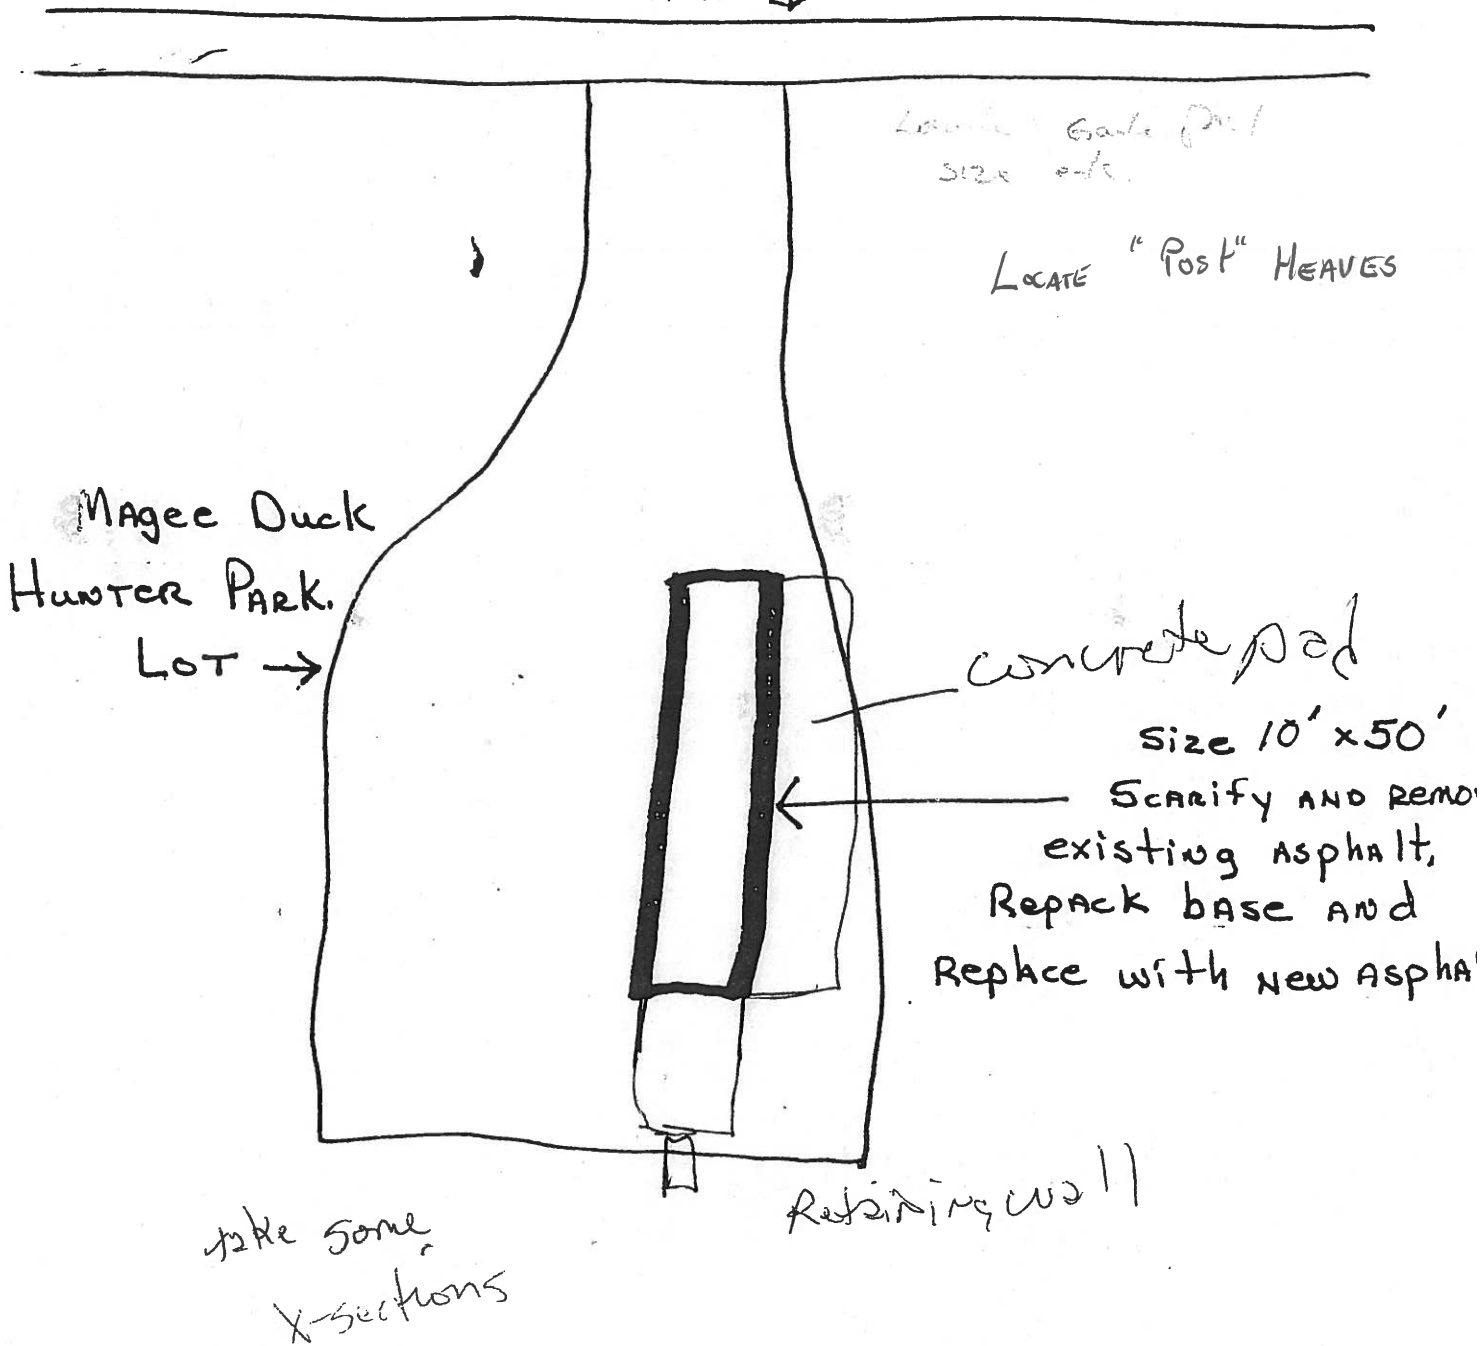 size
LOCATE "Post" HEAVES
MAgee Duck
HUNTER PARK.
LOT
concrete pad
Size 10' x 50'
SCARify AND Remo
existing Asphalt,
RepAck bAse ANd
Replace with New Aspha
Retaining wall
take some
X-sections